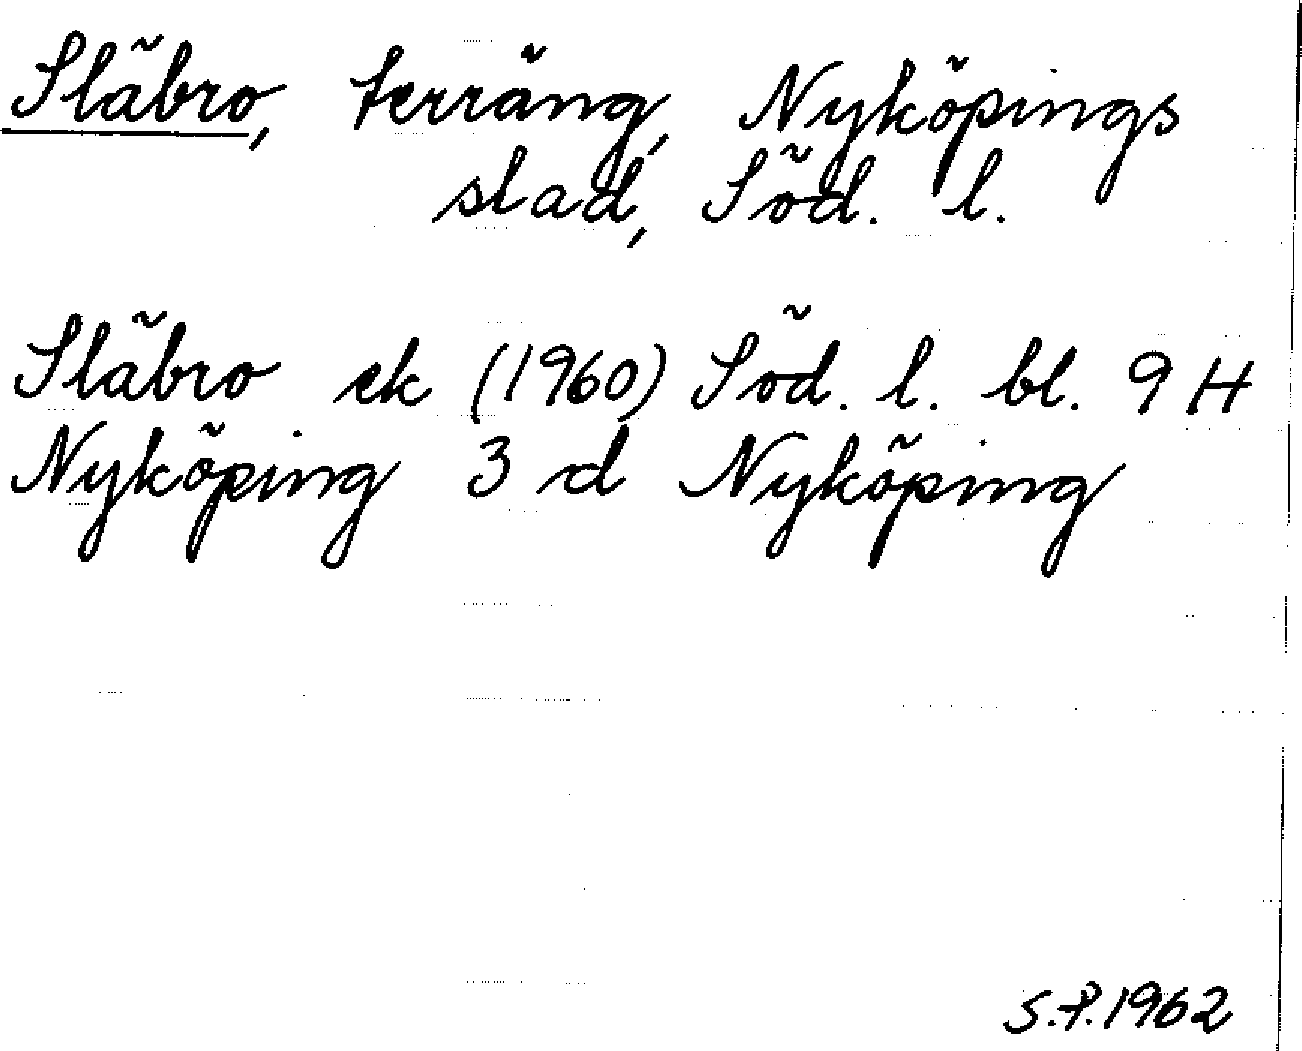 Släbro, terräng, Nyköpings
stad, Söd. l.
Släbro ek (1960) Söd. l. bl. 9 H
Nyköping 3 d Nyköping
S.P. 1962